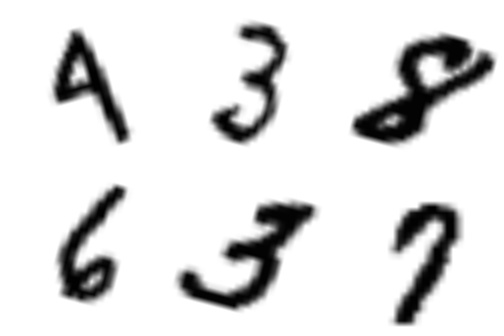 4 3 8
6 3 7